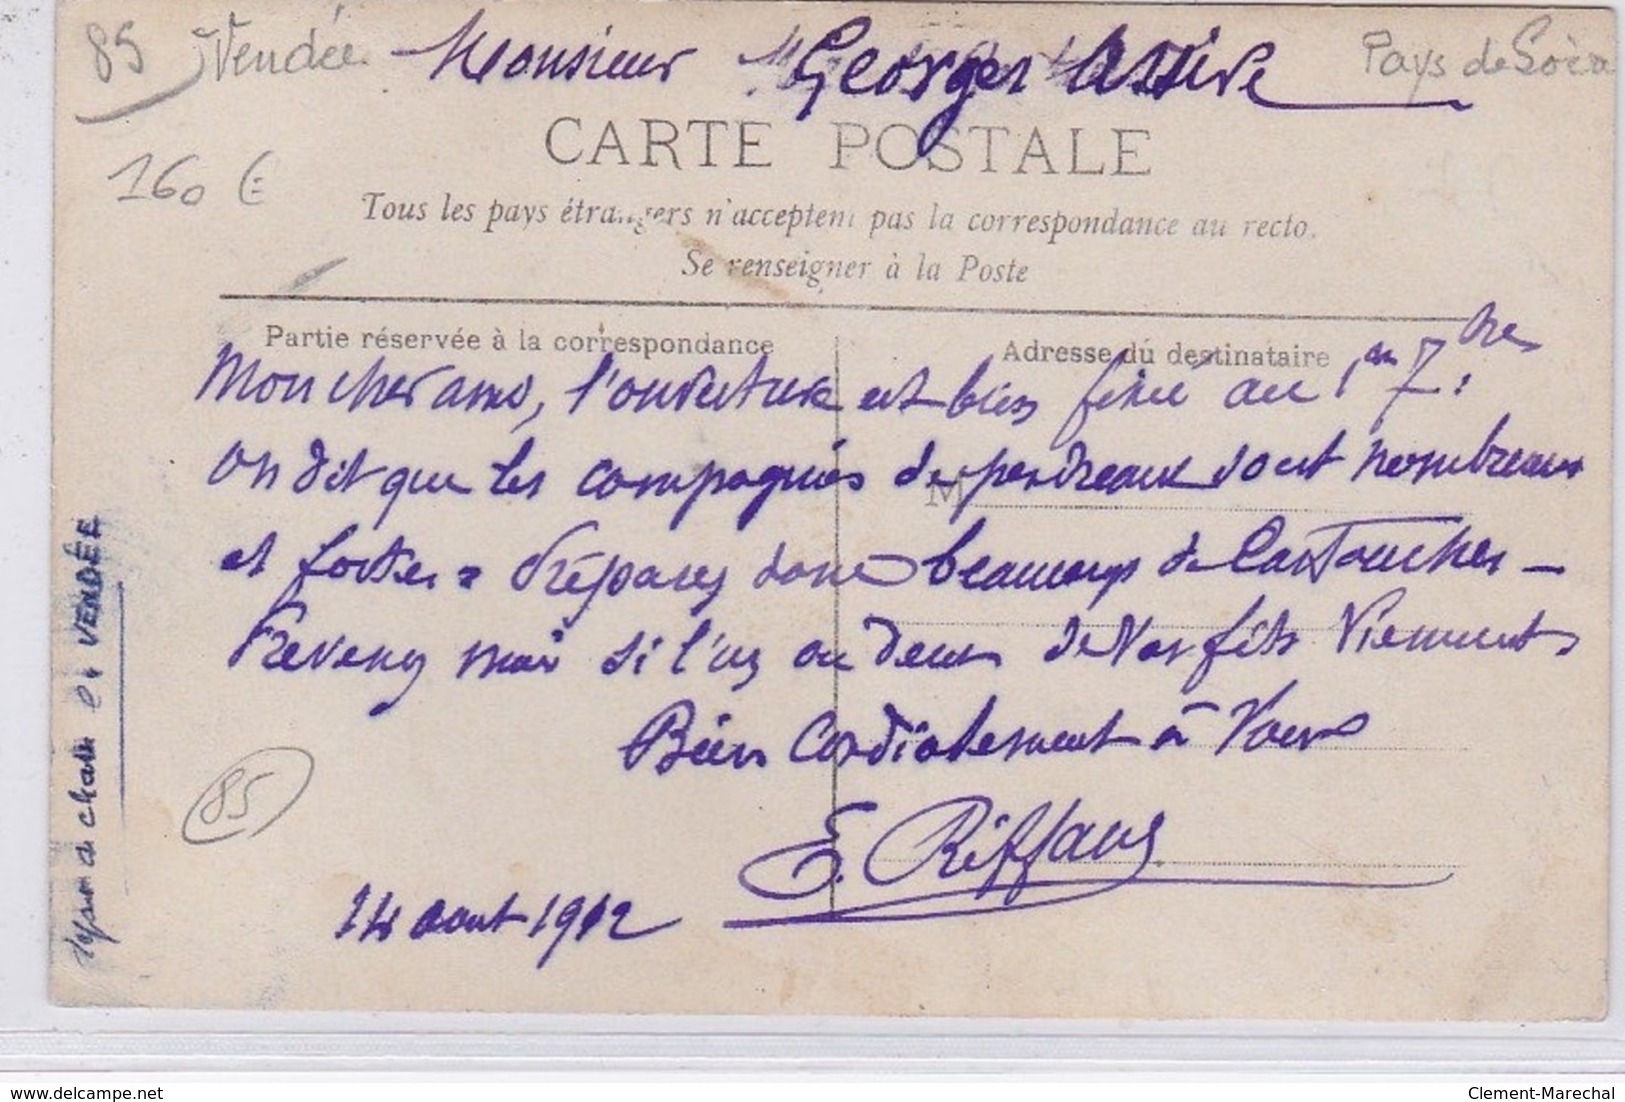 85 Vendée Monsieur Georges Pays de Loire
CARTE POSTALE
160 €
Tous les pays étrangers n'acceptent pas la correspondance au recto.
Se renseigner à la Poste
Partie réservée à la correspondance
Adresse du destinataire
Mon cher ami, l'ouverture est bien fixée au 1er 7bre
M
on dit que les compagnies de perdreaux sont nombreuses
et fortes = Préparez donc beaucoup de Cartouches -
Prevenez moi si l'un ou deux de Vos fils Viennent
Bien Cordialement à Vous
E. Riffaud
14 aout 1912
85
VENDÉE
delcampe.net
Clement-Marechal